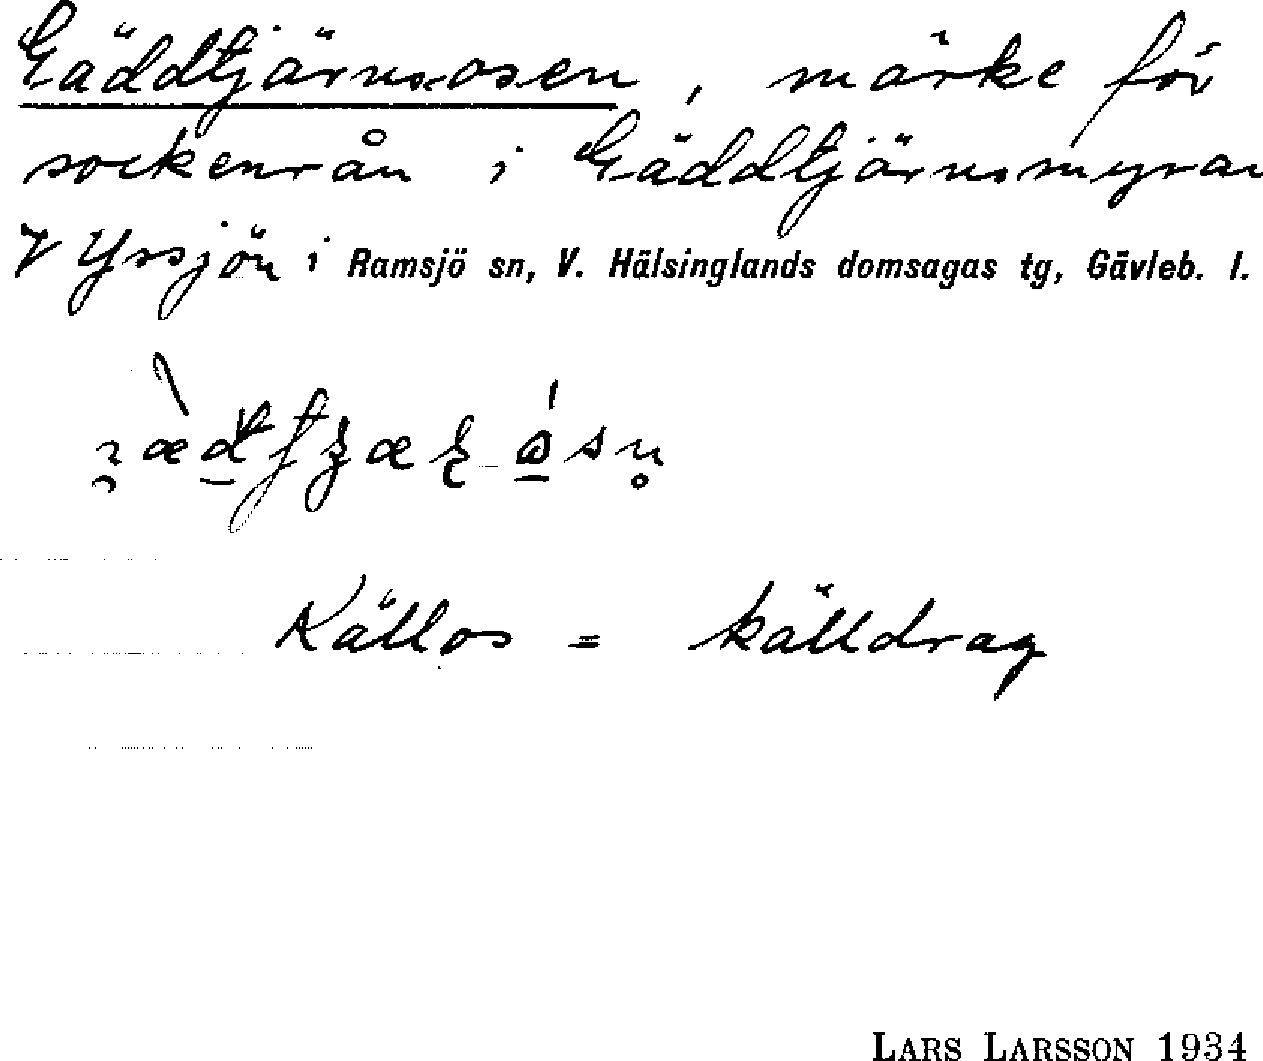 Gäddtjärnsosen, märke för
sockenrån i Gäddtjärnsmyran
V Yssjön i Ramsjö sn, V. Hälsinglands domsagas tg, Gävleb. l.
Källos = källdrag
LARS LARSSON 1934